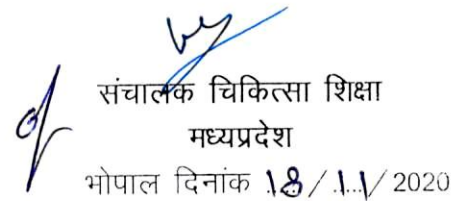 संचालक चिकित्सा शिक्षा
मध्यप्रदेश
भोपाल दिनांक 18/11/2020